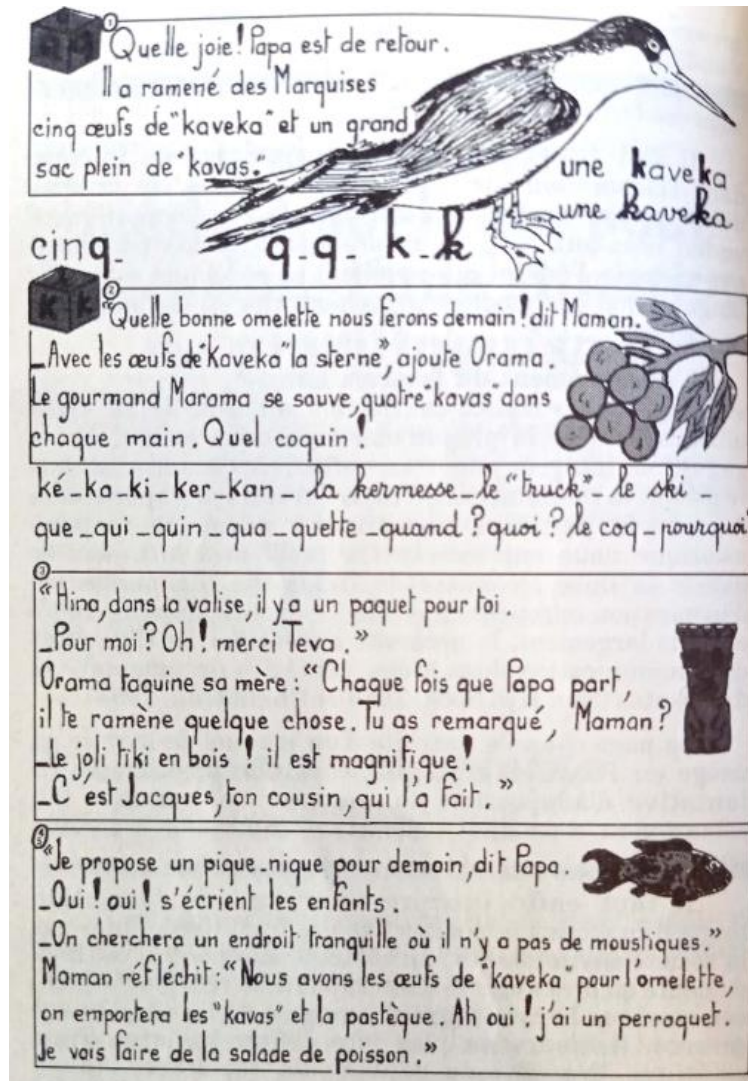 1
Quelle joie! Papa est de retour.
Il a ramené des Marquises
cinq œufs de "kaveka" et un grand
sac plein de "kavas."
une kaveka
une kaveka
cinq_ q_q_ k_k
2
K K
"Quelle bonne omelette nous ferons demain! dit Maman.
_Avec les œufs de "Kaveka" la sterne", ajoute Orama.
Le gourmand Marama se sauve, quatre "kavas" dans
chaque main. Quel coquin!
ké_ko_ki_ker_kan_la kermesse_le "truck"_le ski_
que_qui_quin_qua_quette_quand? quoi? le coq_pourquoi
3
"Hina, dans la valise, il y a un paquet pour toi.
_Pour moi? Oh! merci Teva."
Orama taquine sa mère: "Chaque fois que Papa part,
il te ramène quelque chose. Tu as remarqué, Maman?
_Le joli tiki en bois! il est magnifique!
_C'est Jacques, ton cousin, qui l'a fait."
4
"Je propose un pique_nique pour demain, dit Papa.
_Oui! oui! s'écrient les enfants.
_On cherchera un endroit tranquille où il n'y a pas de moustiques."
Maman réfléchit: "Nous avons les œufs de "kaveka" pour l'omelette,
on emportera les "kavas" et la pastèque. Ah oui! j'ai un perroquet.
Je vais faire de la salade de poisson."